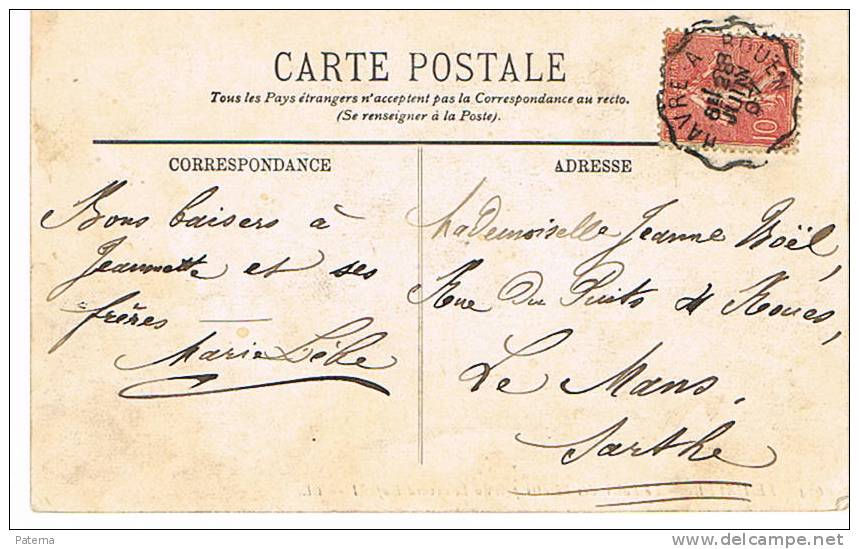 CARTE POSTALE
Tous les Pays étrangers n'acceptent pas la Correspondance au recto.
(Se renseigner à la Poste).
HAVRE A ROUEN
28
JUIN
07
10
CORRESPONDANCE
ADRESSE
Bons baisers à
Jeannette et ses
frères
Marie
Mademoiselle Jeanne Noël,
Rue du Puits 4 Roues,
Le Mans,
Sarthe
Paterna
www.delcampe.net